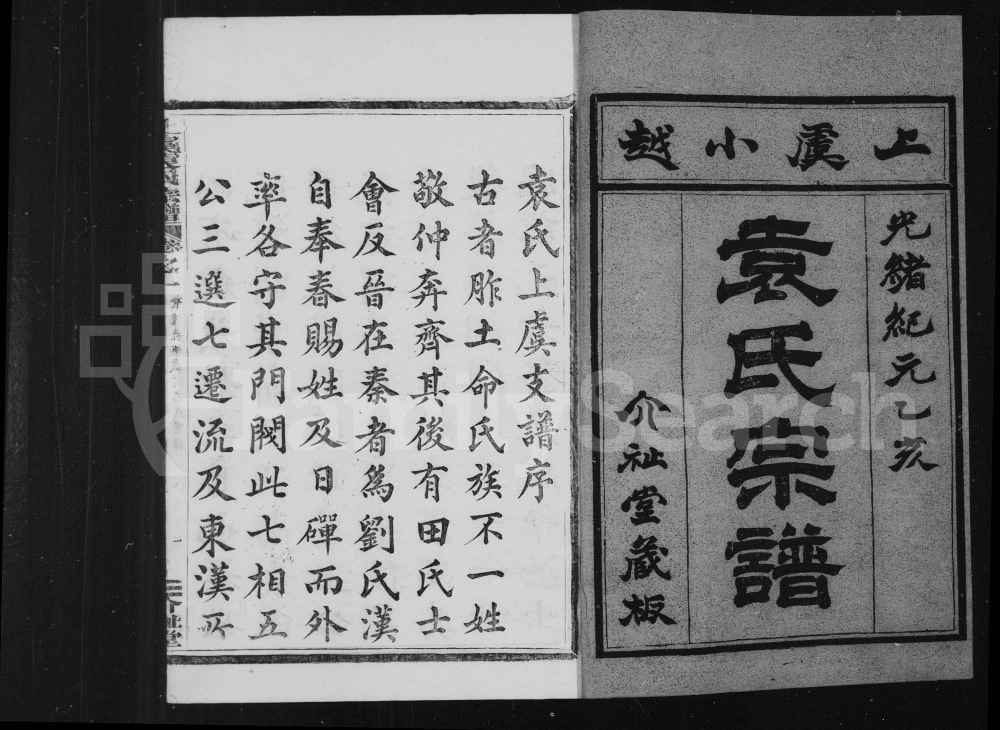 上虞小越
光緒紀元乙亥
袁氏宗譜
介祉堂藏板
袁氏上虞支譜序
古者胙土命氏族不一姓
敬仲奔齊其後有田氏士
會反晉在秦者為劉氏漢
自奉春賜姓及日磾而外
率各守其門閥此七相五
公三選七遷流及東漢所
袁氏宗譜
卷之一
介祉堂
HandySearch